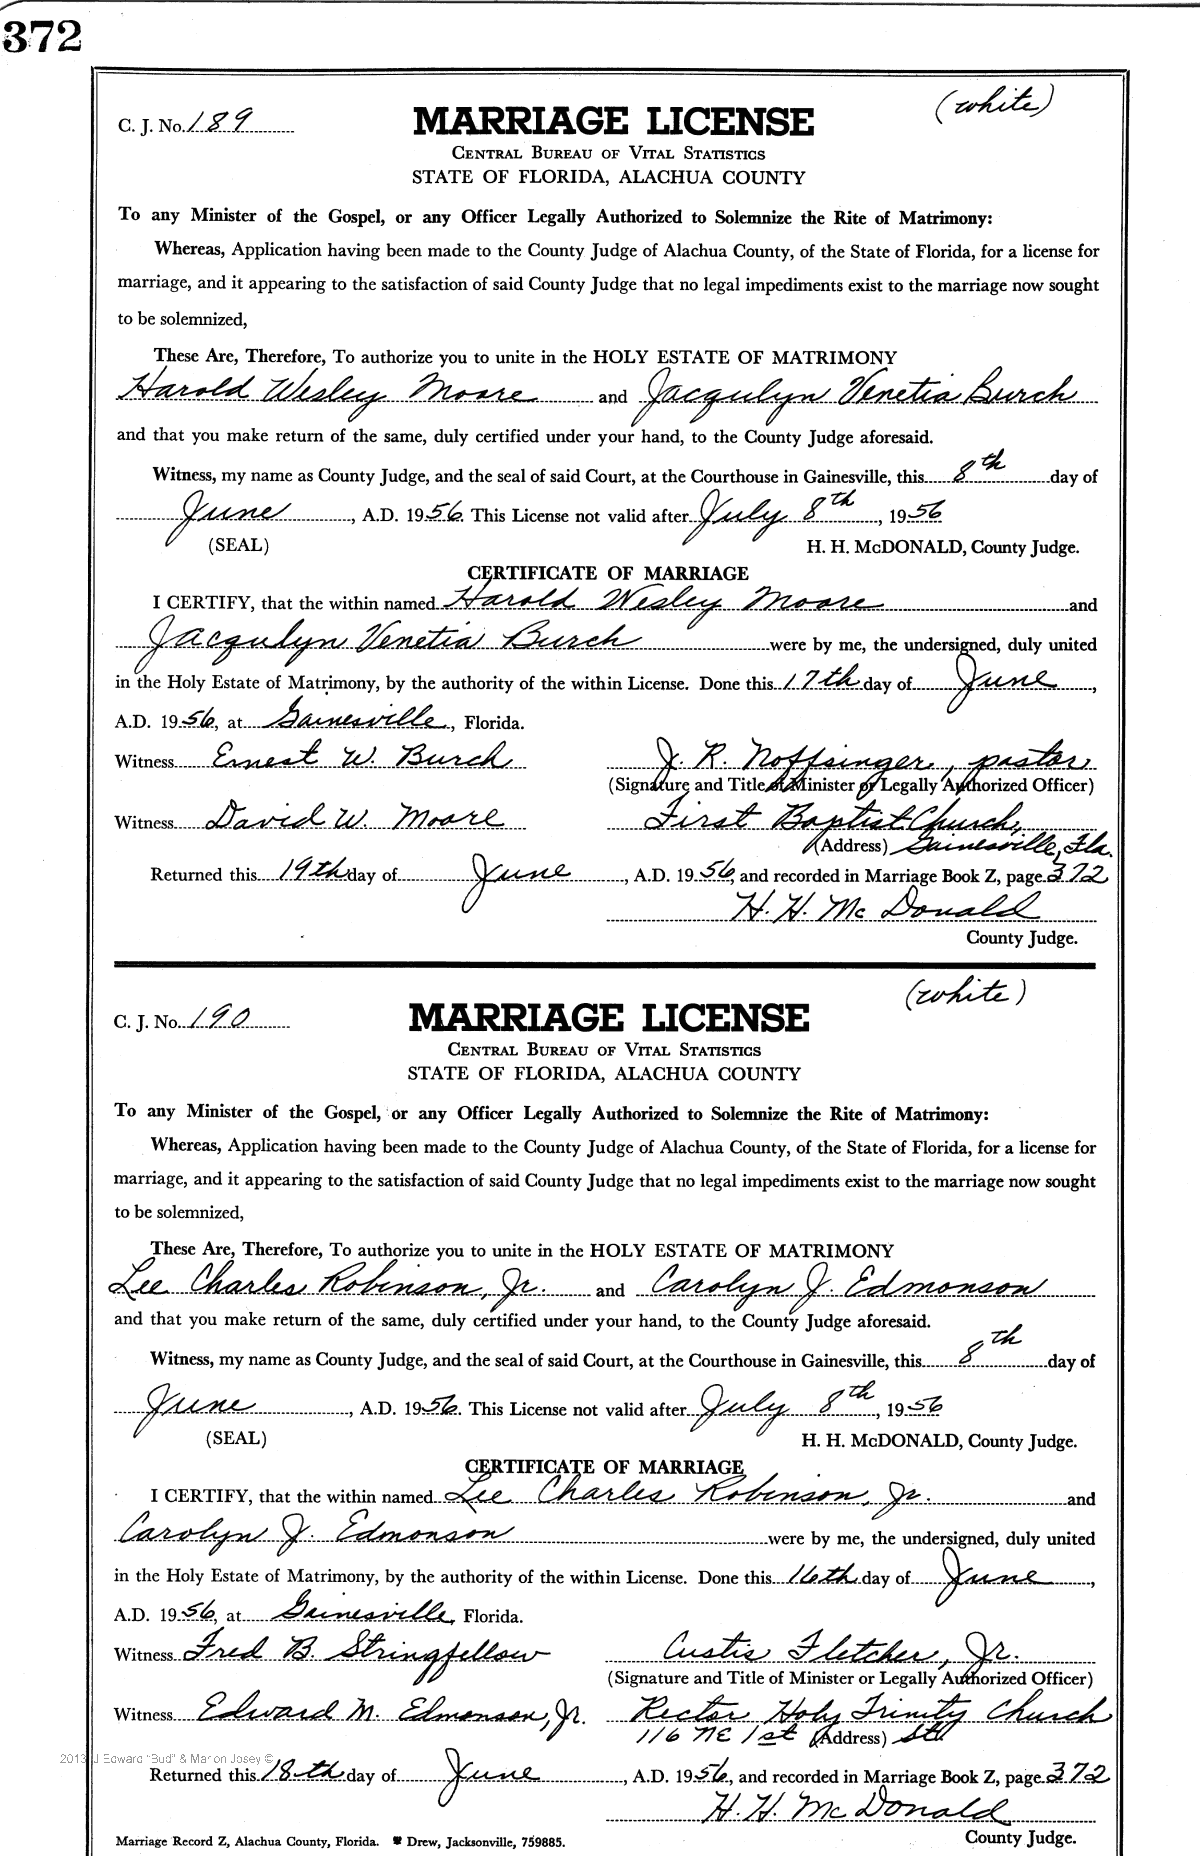 372
(white)
C. J. No. 189
MARRIAGE LICENSE
CENTRAL BUREAU OF VITAL STATISTICS
STATE OF FLORIDA, ALACHUA COUNTY
To any Minister of the Gospel, or any Officer Legally Authorized to Solemnize the Rite of Matrimony:
Whereas, Application having been made to the County Judge of Alachua County, of the State of Florida, for a license for
marriage, and it appearing to the satisfaction of said County Judge that no legal impediments exist to the marriage now sought
to be solemnized,
These Are, Therefore, To authorize you to unite in the HOLY ESTATE OF MATRIMONY
Harold Wesley Moore and Jacqulyn Venetia Burch
and that you make return of the same, duly certified under your hand, to the County Judge aforesaid.
Witness, my name as County Judge, and the seal of said Court, at the Courthouse in Gainesville, this 8th day of
June, A.D. 1956. This License not valid after July 8th, 1956
(SEAL) H. H. McDONALD, County Judge.
CERTIFICATE OF MARRIAGE
I CERTIFY, that the within named Harold Wesley Moore and
Jacqulyn Venetia Burch were by me, the undersigned, duly united
in the Holy Estate of Matrimony, by the authority of the within License. Done this 17th day of June,
A.D. 1956, at Gainesville, Florida.
Witness Ernest W. Burch J. R. Noffsinger, pastor
(Signature and Title of Minister or Legally Authorized Officer)
Witness David W. Moore First Baptist Church,
(Address) Gainesville, Fla.
Returned this 19th day of June, A.D. 1956, and recorded in Marriage Book Z, page 372
H. H. McDonald
County Judge.
(white)
C. J. No. 190
MARRIAGE LICENSE
CENTRAL BUREAU OF VITAL STATISTICS
STATE OF FLORIDA, ALACHUA COUNTY
To any Minister of the Gospel, or any Officer Legally Authorized to Solemnize the Rite of Matrimony:
Whereas, Application having been made to the County Judge of Alachua County, of the State of Florida, for a license for
marriage, and it appearing to the satisfaction of said County Judge that no legal impediments exist to the marriage now sought
to be solemnized,
These Are, Therefore, To authorize you to unite in the HOLY ESTATE OF MATRIMONY
Lee Charles Robinson, Jr. and Carolyn J. Edmonson
and that you make return of the same, duly certified under your hand, to the County Judge aforesaid.
Witness, my name as County Judge, and the seal of said Court, at the Courthouse in Gainesville, this 8th day of
June, A.D. 1956. This License not valid after July 8th, 1956
(SEAL) H. H. McDONALD, County Judge.
CERTIFICATE OF MARRIAGE
I CERTIFY, that the within named Lee Charles Robinson, Jr. and
Carolyn J. Edmonson were by me, the undersigned, duly united
in the Holy Estate of Matrimony, by the authority of the within License. Done this 16th day of June,
A.D. 1956, at Gainesville, Florida.
Witness Fred B. Stringfellow Custis Fletcher, Jr.
(Signature and Title of Minister or Legally Authorized Officer)
Witness Edward M. Edmonson, Jr. Rector Holy Trinity Church
116 NE 1st (Address) St.
2013 J Edward "Bud" & Marion Josey ©
Returned this 18th day of June, A.D. 1956, and recorded in Marriage Book Z, page 372
H. H. McDonald
Marriage Record Z, Alachua County, Florida. Drew, Jacksonville, 759885. County Judge.